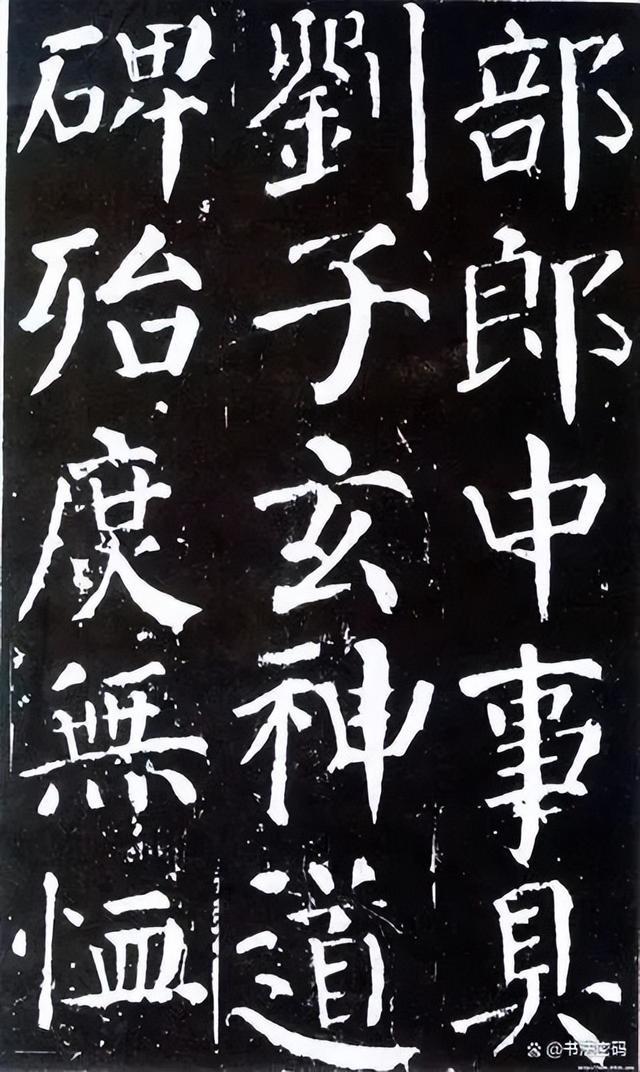 部郎中事具
劉子玄神道
碑殆庶無恤
@书法密码